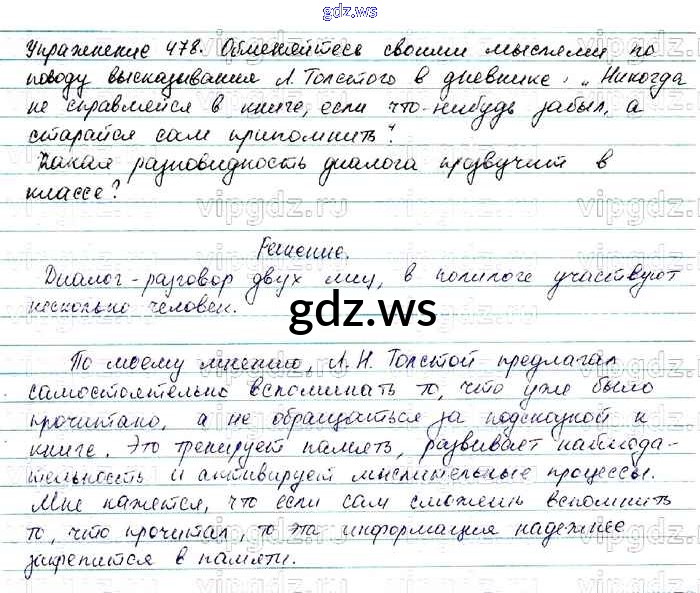 gdz.ws
Упражнение 478. Обменяйтесь своими мыслями по
поводу высказывания Л. Толстого в дневнике: „Никогда
не справляйся в книге, если что-нибудь забыл, а
старайся сам припомнить".
Какая разновидность диалога прозвучит в
классе?
Решение.
Диалог - разговор двух лиц, в полилоге участвуют
несколько человек.
gdz.ws
По моему мнению, Л. Н. Толстой предлагал
самостоятельно вспоминать то, что уже было
прочитано, а не обращаться за подсказкой к
книге. Это тренирует память, развивает наблюда-
тельность и активирует мыслительные процессы.
Мне кажется, что если сам сможешь вспомнить
то, что прочитал, то эта информация надежнее
закрепится в памяти.
vipgdz.ru